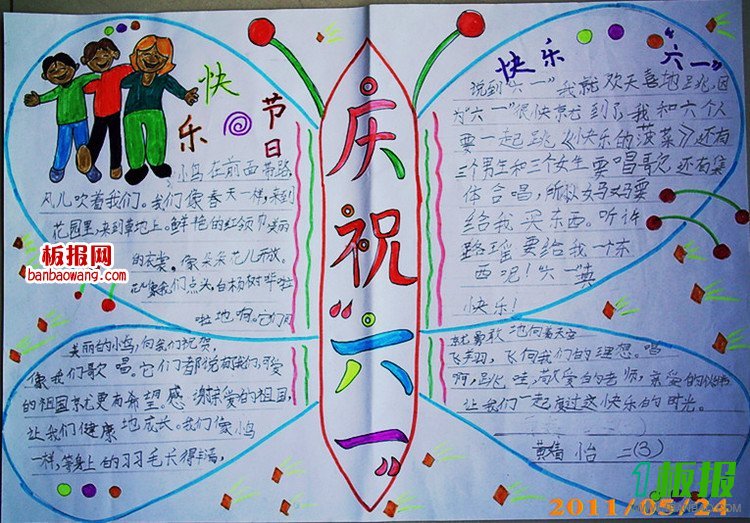 快乐
节日
小鸟在前面带路
风儿吹着我们。我们像春天一样,来到
花园里,来到草地上。鲜艳的红领巾,美丽
的衣裳,像朵朵花儿开放。
花像我们点头,白杨树哗啦
啦地啊。它们同
美丽的小鸟,向我们祝贺,
像我们歌唱。它们都说
的祖国就更有希望。感谢亲爱的祖国,
让我们健康地成长。我们像小鸟
一样,等身上的羽毛长得丰满,
庆祝“六一”
快乐“六一”
说到“六一”我就欢天喜地跳,因
为“六一”很快就到了,我和六个人
要一起跳《快乐的菠菜》还有
三个男生和三个女生要唱歌,还有集
体合唱,所以妈妈要
给我买东西。听许
路瑶要给我一个东
西呢!“六一”真
快乐!
就勇敢地向着天空
飞翔,飞向我们的理想。唱
啊,跳哇,敬爱的老师,亲爱的伙伴
让我们一起度过这快乐的时光。
黄婧怡 二(3)
板报网
banbaowang.com
1板报
2011/05/24